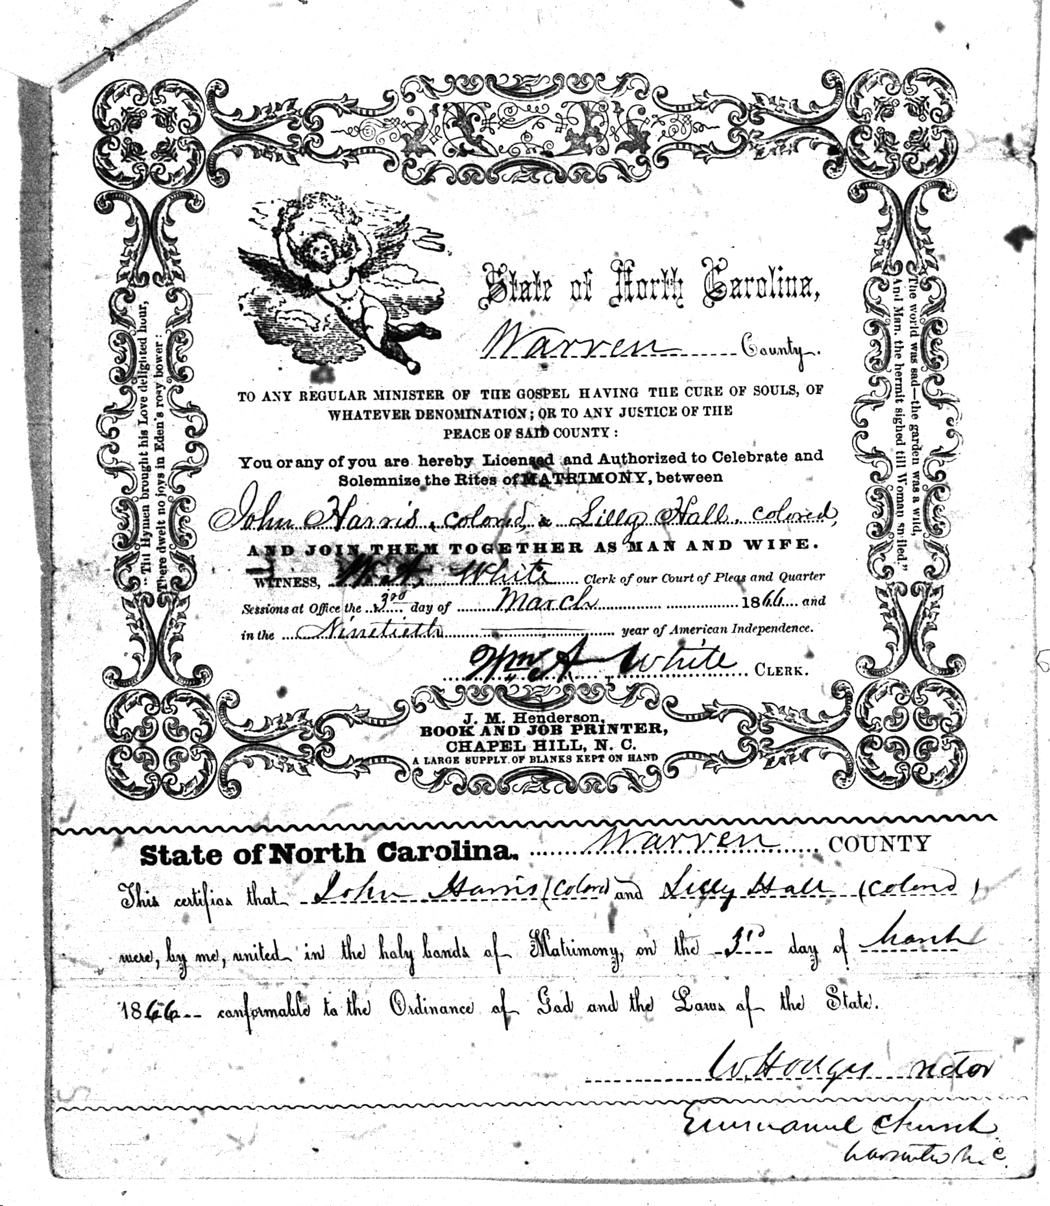 State of North Carolina,
Warren County.
TO ANY REGULAR MINISTER OF THE GOSPEL HAVING THE CURE OF SOULS, OF
WHATEVER DENOMINATION; OR TO ANY JUSTICE OF THE
PEACE OF SAID COUNTY:
You or any of you are hereby Licensed and Authorized to Celebrate and
Solemnize the Rites of MATRIMONY, between
John Harris, colored, & Lilly Hall, colored,
AND JOIN THEM TOGETHER AS MAN AND WIFE.
WITNESS, Wm A. White Clerk of our Court of Pleas and Quarter
Sessions at Office the 3rd day of March 1866 and
in the Ninetieth year of American Independence.
Wm A White CLERK.
"Till Hymen brought his Love delighted hour,
There dwelt no joys in Eden's rosy bower:
The world was sad—the garden was a wild,
And Man, the hermit sighed till Woman smiled."
J. M. Henderson,
BOOK AND JOB PRINTER,
CHAPEL HILL, N. C.
A LARGE SUPPLY OF BLANKS KEPT ON HAND
State of North Carolina. Warren COUNTY
This certifies that John Harris (Colord and Lilly Hall (colord)
were, by me, united in the holy bands of Matrimony, on the 3rd day of March
1866 conformable to the Ordinance of God and the Laws of the State.
W. Hodges rector
Emmanuel Church
N. C.